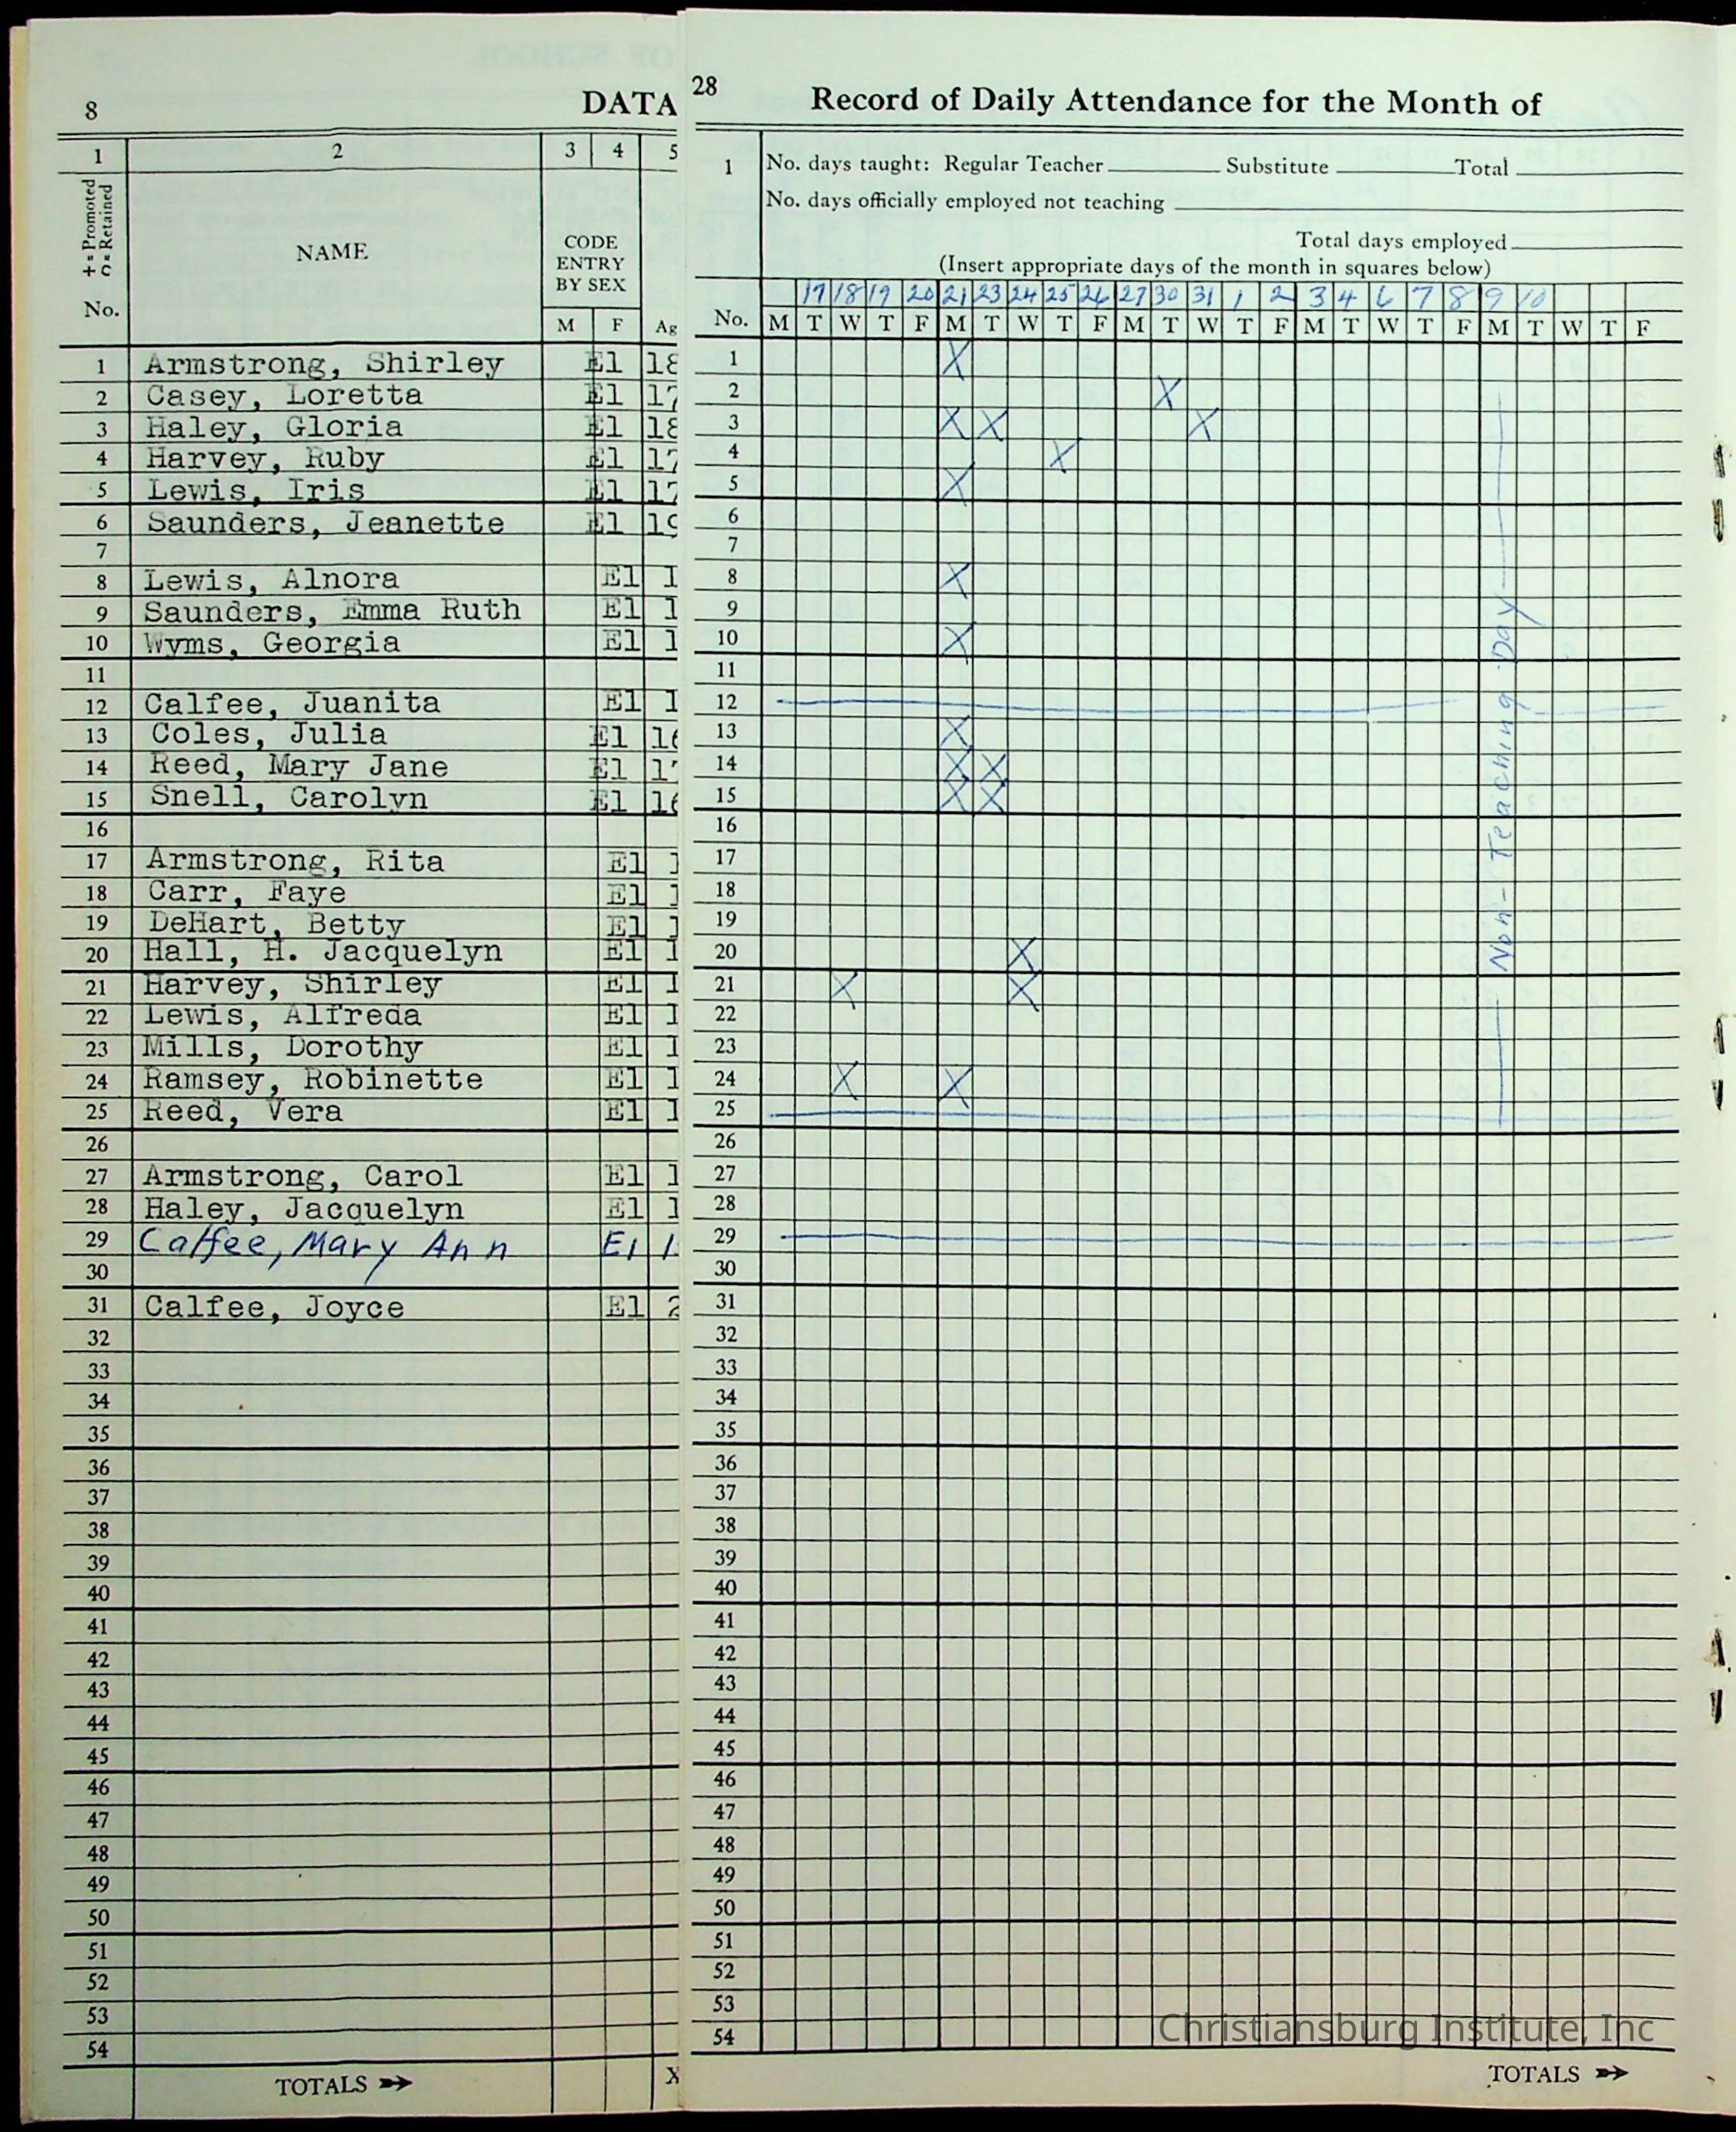 8 DATA
1 2 3 4 5
+ = Promoted
C = Retained
No.
NAME
CODE
ENTRY
BY SEX
M F Ag
1 Armstrong, Shirley El 18
2 Casey, Loretta El 17
3 Haley, Gloria El 18
4 Harvey, Ruby El 17
5 Lewis, Iris El 17
6 Saunders, Jeanette El 19
7
8 Lewis, Alnora El 1
9 Saunders, Emma Ruth El 1
10 Wyms, Georgia El 1
11
12 Calfee, Juanita El 1
13 Coles, Julia El 16
14 Reed, Mary Jane El 17
15 Snell, Carolyn El 16
16
17 Armstrong, Rita El 1
18 Carr, Faye El 1
19 DeHart, Betty El 1
20 Hall, H. Jacquelyn El 1
21 Harvey, Shirley El 1
22 Lewis, Alfreda El 1
23 Mills, Dorothy El 1
24 Ramsey, Robinette El 1
25 Reed, Vera El 1
26
27 Armstrong, Carol El 1
28 Haley, Jacquelyn El 1
29 Calfee, Mary Ann El 1
30
31 Calfee, Joyce El 2
32
33
34
35
36
37
38
39
40
41
42
43
44
45
46
47
48
49
50
51
52
53
54
TOTALS X
28 Record of Daily Attendance for the Month of
1 No. days taught: Regular Teacher Substitute Total
No. days officially employed not teaching
Total days employed
(Insert appropriate days of the month in squares below)
17 18 19 20 21 23 24 25 26 27 30 31 1 2 3 4 6 7 8 9 10
No. M T W T F M T W T F M T W T F M T W T F M T W T F
1 X
2 X
3 X X X
4 X
5 X
6
7
8 X
9
10 X
11
12
13 X
14 X X
15 X X
16
17
18
19
20 X
21 X X
22
23
24 X X
25
26
27
28
29
30
31
32
33
34
35
36
37
38
39
40
41
42
43
44
45
46
47
48
49
50
51
52
53
54
Non-Teaching Day
TOTALS
Christiansburg Institute, Inc